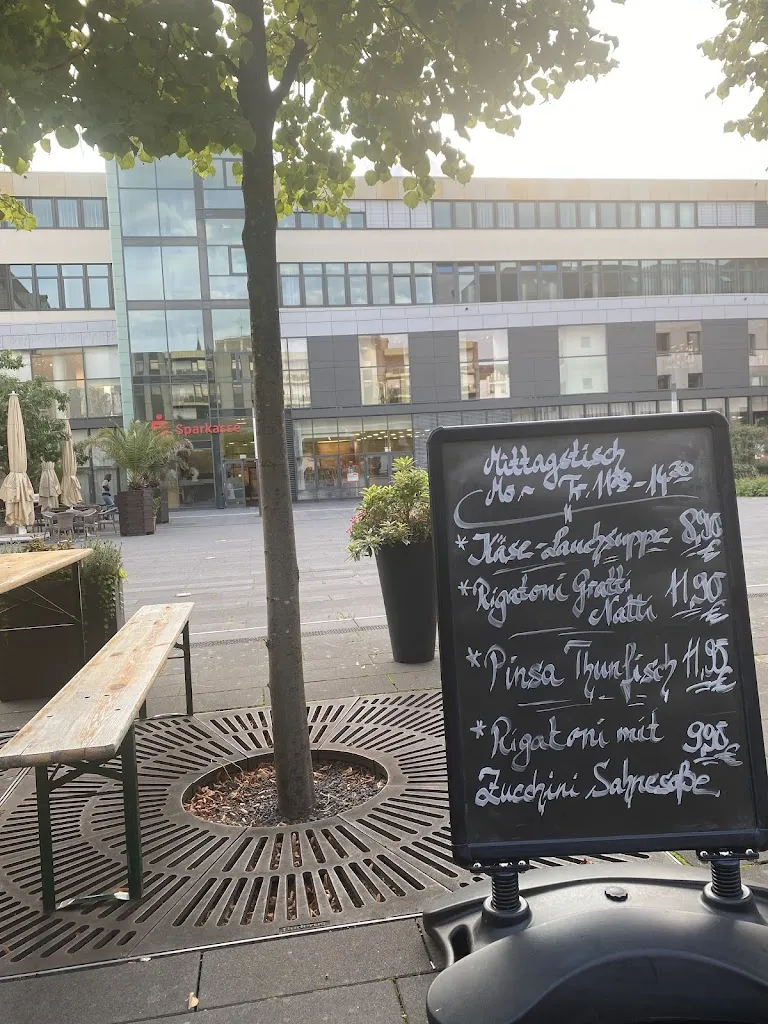 Sparkasse
Mittagstisch
Mo - Fr 11:30 - 14:30
* Käse-Lauchsuppe 8,90 €
* Rigatoni Gratti
Natti 11,90 €
* Pinsa Thunfisch 11,90 €
* Rigatoni mit 9,90 €
Zucchini Sahnesoße